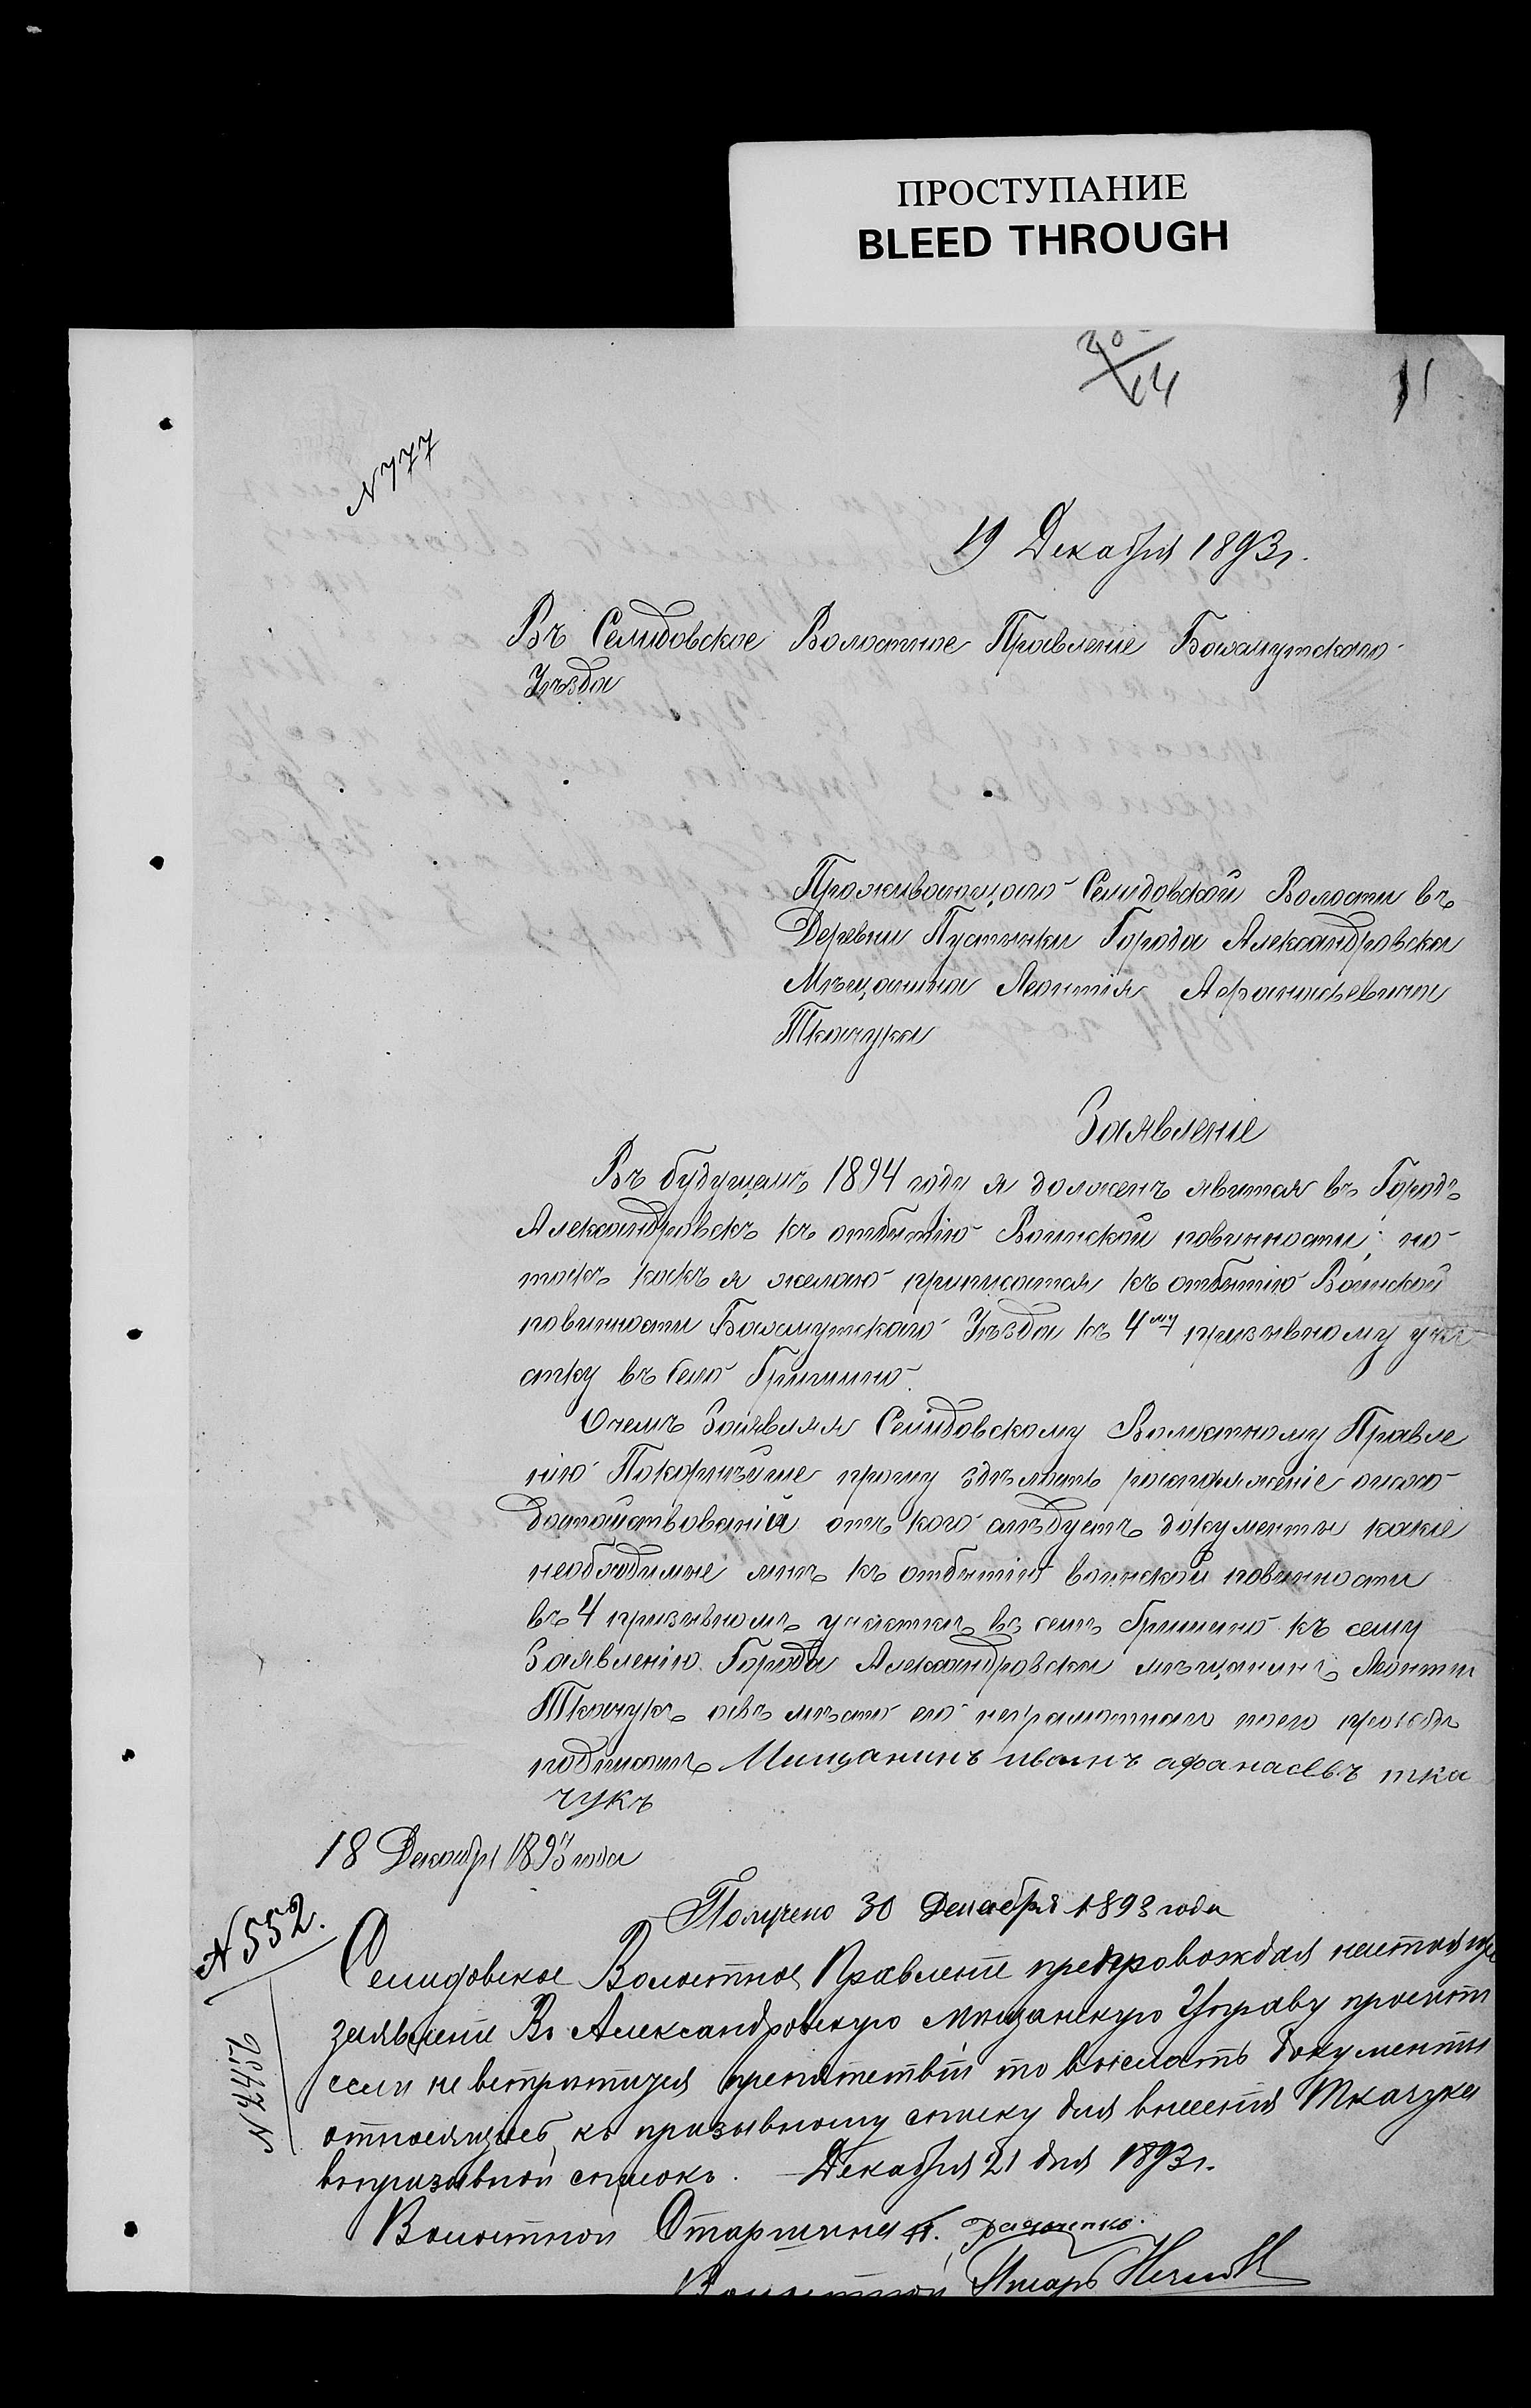 ПРОСТУПАНИЕ
BLEED THROUGH
11
N 777
19 Декабря 1893 г.
Въ Селидовское Волостное Правленіе Бахмутскаго
Уѣзда
Проживающаго Селидовской Волости въ
Деревни Пустынки Города Александровска
Мѣщанина Леонтія Афанасьевича
Ткачука
Заявленіе
Въ будущемъ 1894 году я долженъ явится въ Городъ
Александровскъ къ отбытію Воинской повинности; но
такъ какъ я желаю приписатся къ отбытію Воинской
повинности Бахмутскаго Уѣзда къ 4му призывному уча
стку въ село Гришино.
Очемъ Заявляя Селидовскому Волостному Правле
нію Покорнѣйше прошу здѣлать распоряженіе
отъ кого слѣдуетъ документы какіе
необходимые мнѣ къ отбытію воинской повинности
въ 4 призывномъ участкѣ въ селѣ Гришино къ сему
Заявленію Города Александровска мѣщанинъ Леонтій
Ткачукъ мѣсто его неграмотнаго
Мищанинъ иванъ афанасевъ тка
чукъ
18 Декабря 1893 года
Получено 30 Декабря 1893 года
N 552.
Селидовское Волостное Правленіе препровождая настояще
заявленіе Въ Александровскую мѣщанскую Управу проситъ
если не встрѣтится препятствій то выслать документы
относящіеся къ призывному списку для внесенія Ткачука
въ призывной списокъ. Декабря 21 дня 1893 г.
Волостной Старшина
Волостной Писарь